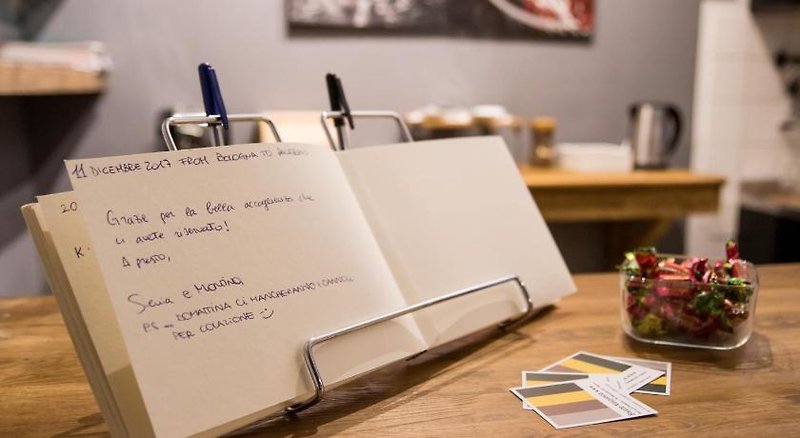 11 DICEMBRE 2017 FROM BOLOGNA TO PALERMO
20
Grazie per la bella accoglienza che
ci avete riservato!
K.
A presto,
e
PS... DOMATTINA CI MANCHERANNO I CANNOLI
PER COLAZIONE